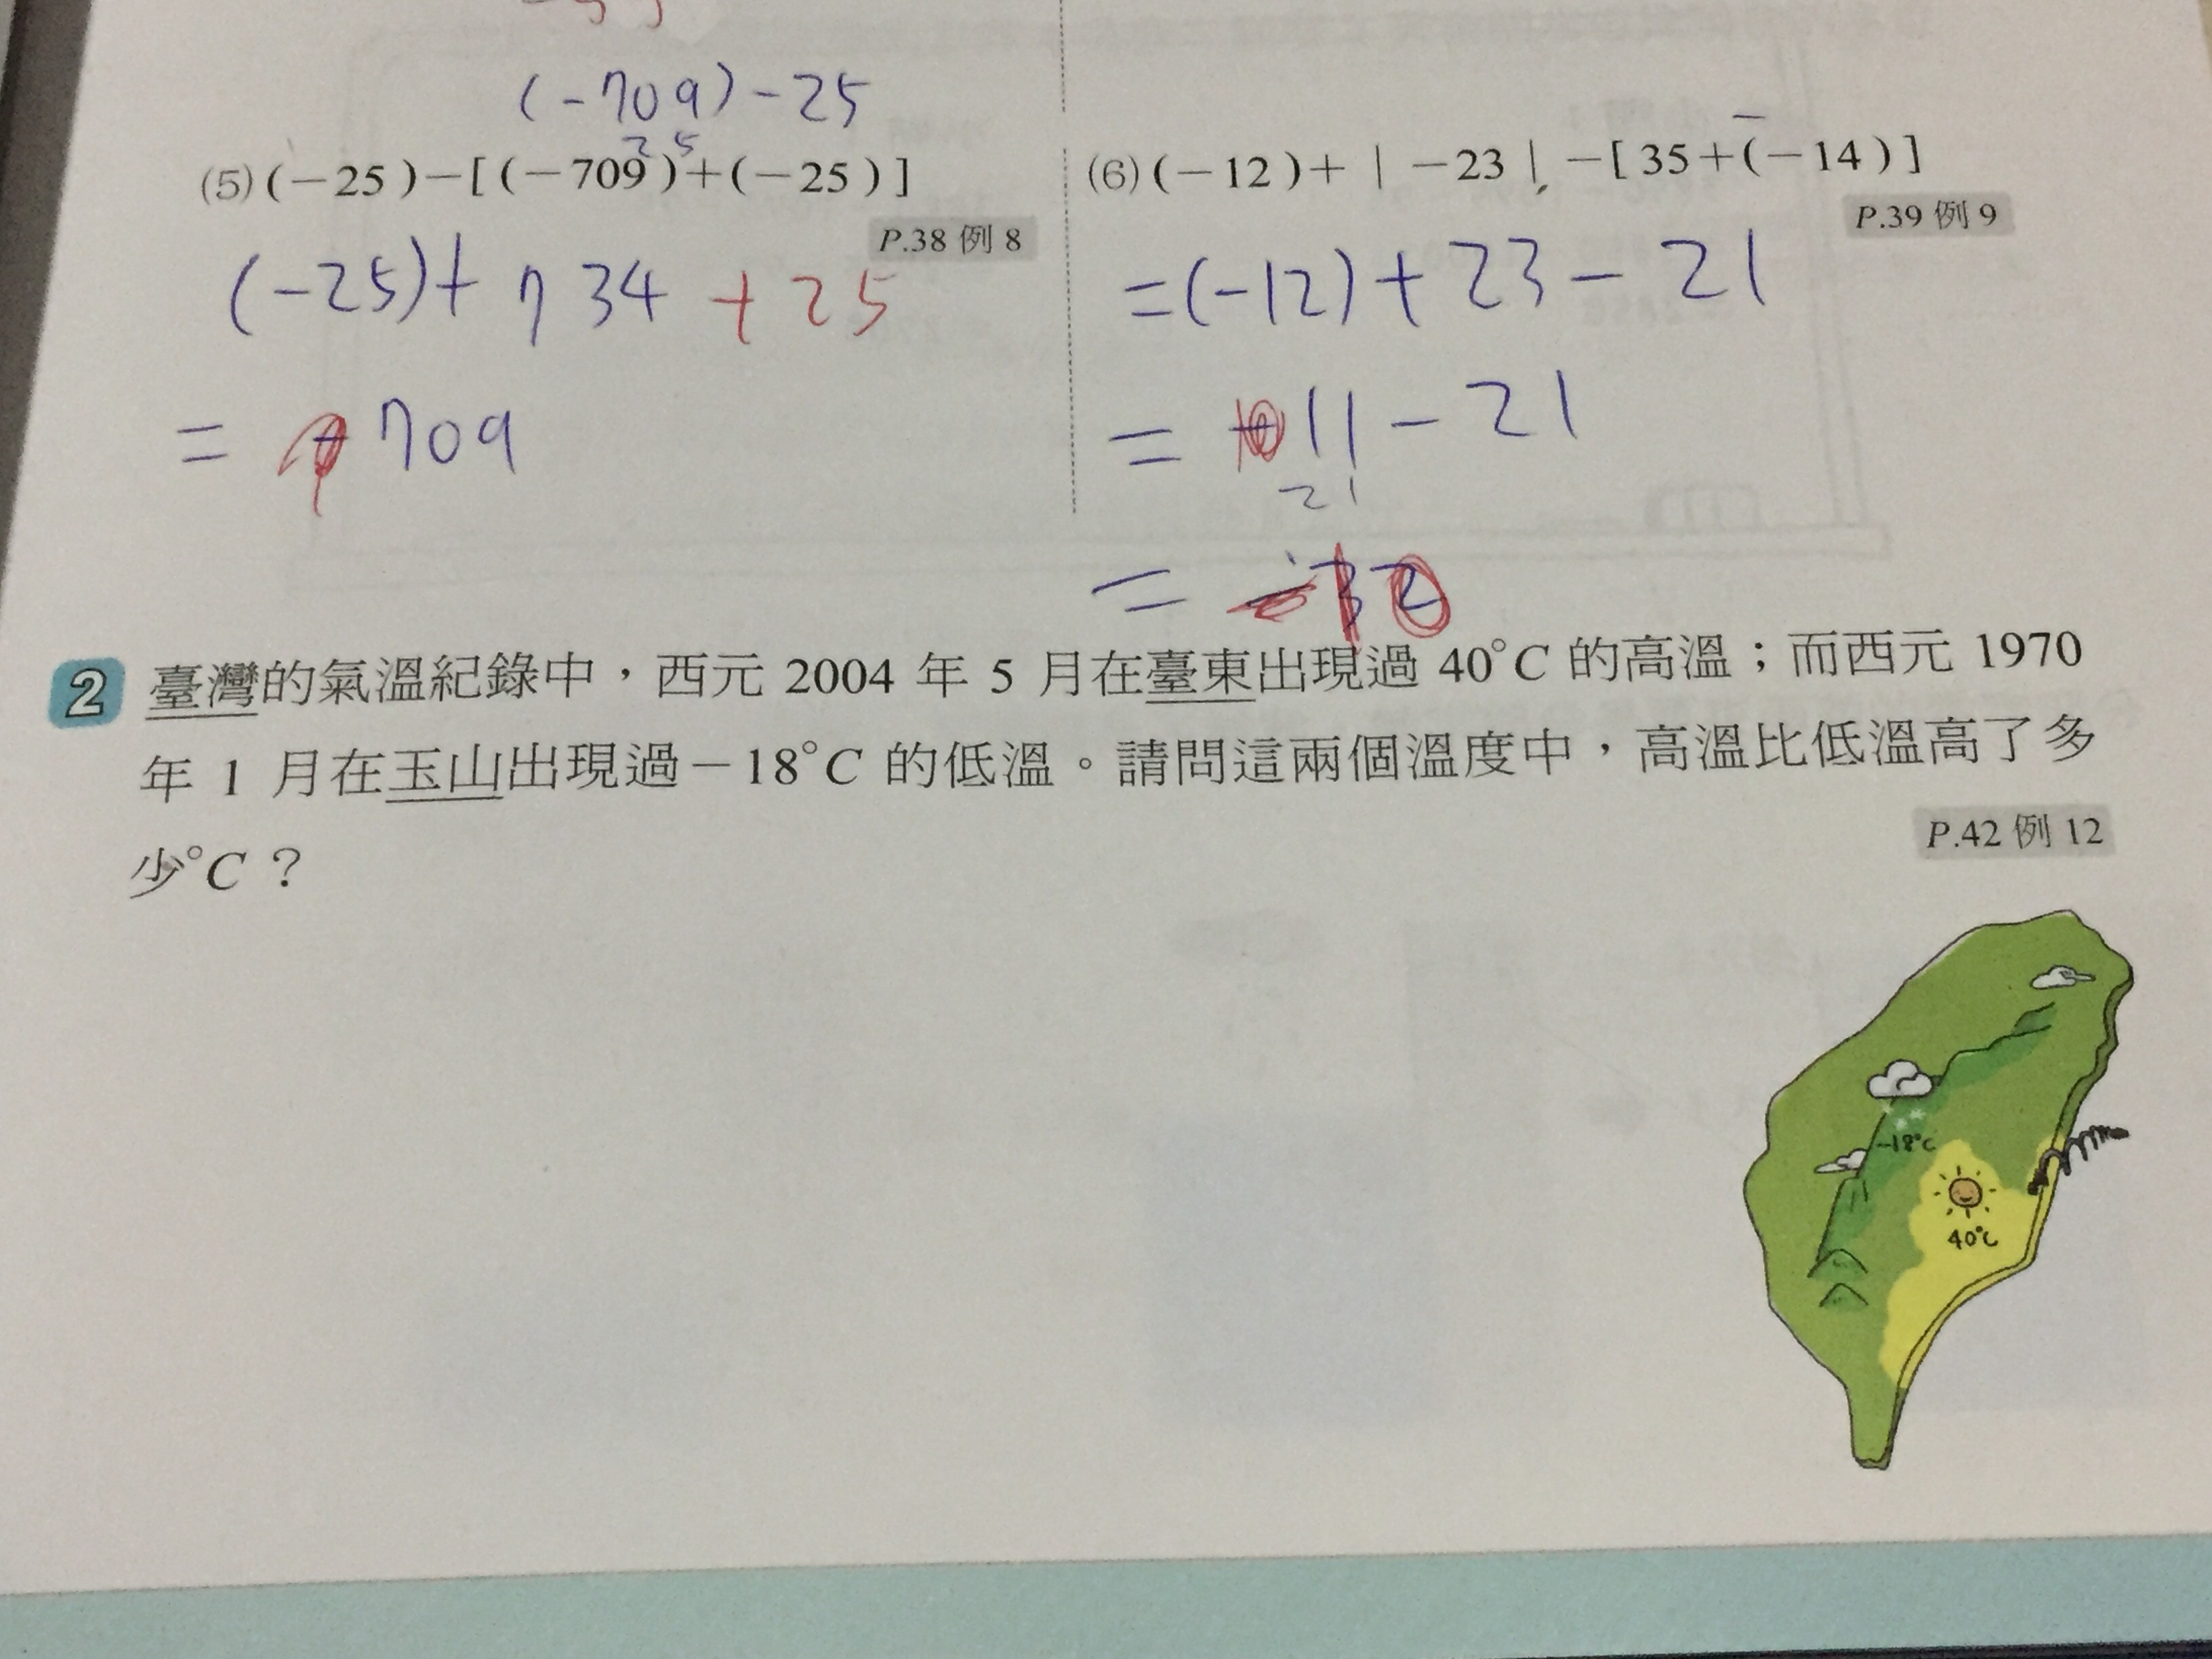 (-709)-25
2 5
(5)(-25)-[(-709)+(-25)]
P.38 例 8
(-25)+734 +25
= 709
(6)(-12)+|-23|-[35+(-14)]
P.39 例 9
=(-12)+23-21
= 11-21
21
=
2 臺灣的氣溫紀錄中，西元 2004 年 5 月在臺東出現過 40°C 的高溫；而西元 1970
年 1 月在玉山出現過－18°C 的低溫。請問這兩個溫度中，高溫比低溫高了多
少°C？
P.42 例 12
-18°C
40°C